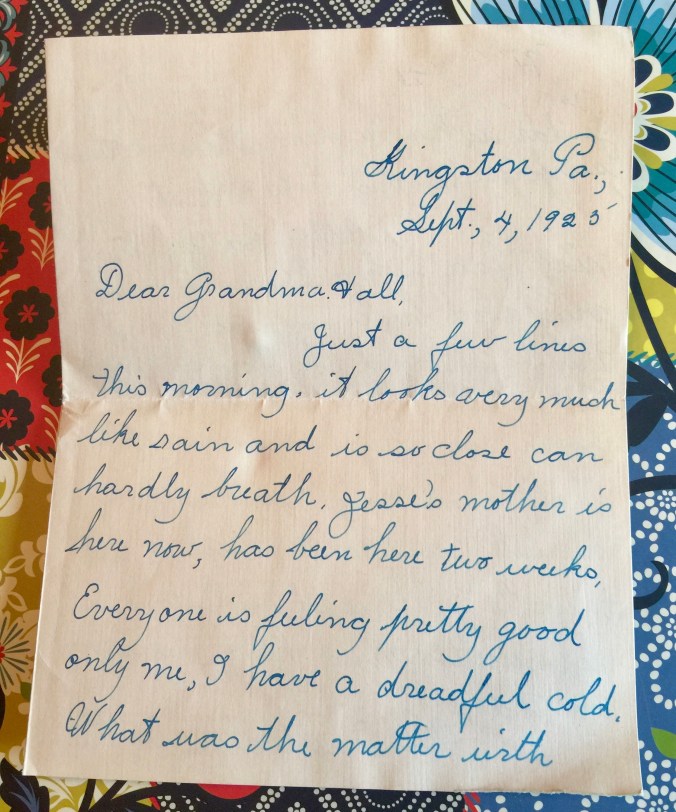 Kingston Pa.,
Sept., 4, 1925
Dear Grandma & all,
Just a few lines
this morning. it looks very much
like rain and is so close can
hardly breath. Jesse's mother is
here now, has been here two weeks,
Everyone is feeling pretty good
only me, I have a dreadful cold.
What was the matter with